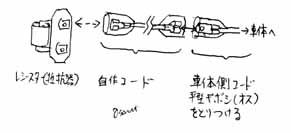 車体へ
レジスター(抵抗器)
自作コード
車体側コード
平型ギボシ(オス)
をとりつける